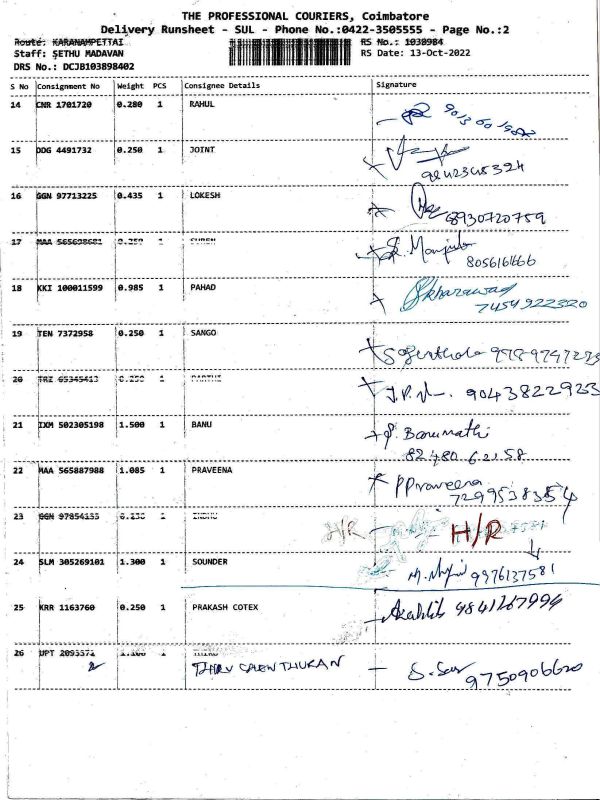 THE PROFESSIONAL COURIERS, Coimbatore
Delivery Runsheet - SUL - Phone No.:0422-3505555 - Page No.:2
Route: KARANAMPETTAI RS No.: 1030984
Staff: SETHU MADAVAN RS Date: 13-Oct-2022
DRS No.: DCJB103898402
S No Consignment No Weight PCS Consignee Details Signature
14 CNR 1701720 0.280 1 RAHUL
15 DDG 4491732 0.250 1 JOINT
9842345324
16 GGN 97713225 0.435 1 LOKESH
8930720759
17 MAA 565698681 0.250 1
Manjula
8056161666
18 KKI 100011599 0.985 1 PAHAD
7454922320
19 TEN 7372958 0.250 1 SANGO
20 TRZ 65345413 0.250 1 PARTHI
9043822923
21 IXM 502305198 1.500 1 BANU
P. Banumathi
82480 62158
22 MAA 565887988 1.085 1 PRAVEENA
PPraveena
7299538354
23 GGN 97854133 0.230 1 INDHU H/R H/R
24 SLM 305269101 1.300 1 SOUNDER
9976137581
25 KRR 1163760 0.250 1 PRAKASH COTEX
9841267994
26 UPT 1
9750906620